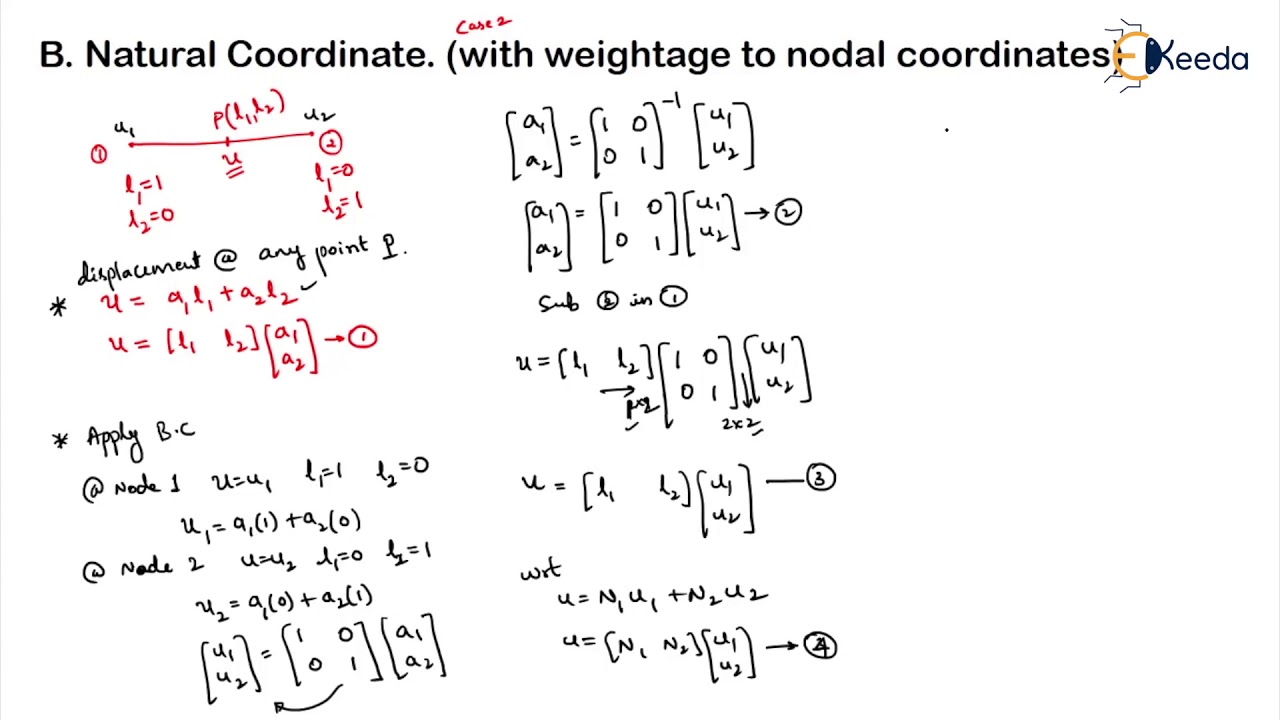 Case 2
B. Natural Coordinate. (with weightage to nodal coordinates)
EKeeda
u₁ P(l₁, l₂) u₂
① u ②
l₁=1 l₁=0
l₂=0 l₂=1
displacement @ any point P.
* u = a₁l₁ + a₂l₂ ✓
u = [l₁ l₂] [a₁ a₂] → ①
* Apply B.C
@ Node 1 u=u₁ l₁=1 l₂=0
u₁ = a₁(1) + a₂(0)
@ Node 2 u=u₂ l₁=0 l₂=1
u₂ = a₁(0) + a₂(1)
[u₁ u₂] = [1 0 0 1] [a₁ a₂]
[a₁ a₂] = [1 0 0 1]⁻¹ [u₁ u₂]
[a₁ a₂] = [1 0 0 1] [u₁ u₂] → ②
Sub ② in ①
u = [l₁ l₂] [1 0 0 1] [u₁ u₂]
1×2 2×2
u = [l₁ l₂] [u₁ u₂] — ③
wrt
u = N₁u₁ + N₂u₂
u = [N₁ N₂] [u₁ u₂] → ④